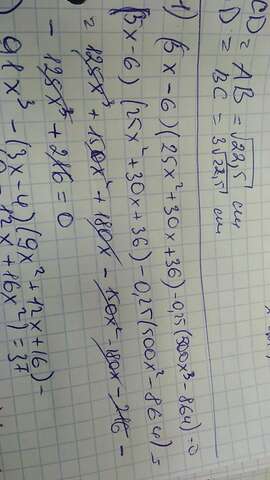 CD = AB = √22,5 см
D = BC = 3√22,5 см
1) (5x-6)(25x²+30x+36)-0,25(500x³-864)=0
(5x-6)(25x²+30x+36)-0,25(500x²-864)=
= 125x³+150x²+180x-150x²-180x-216-
- 125x³+216=0
98x³-(3x-4)(9x²+12x+16)-
12x+16x²)=37